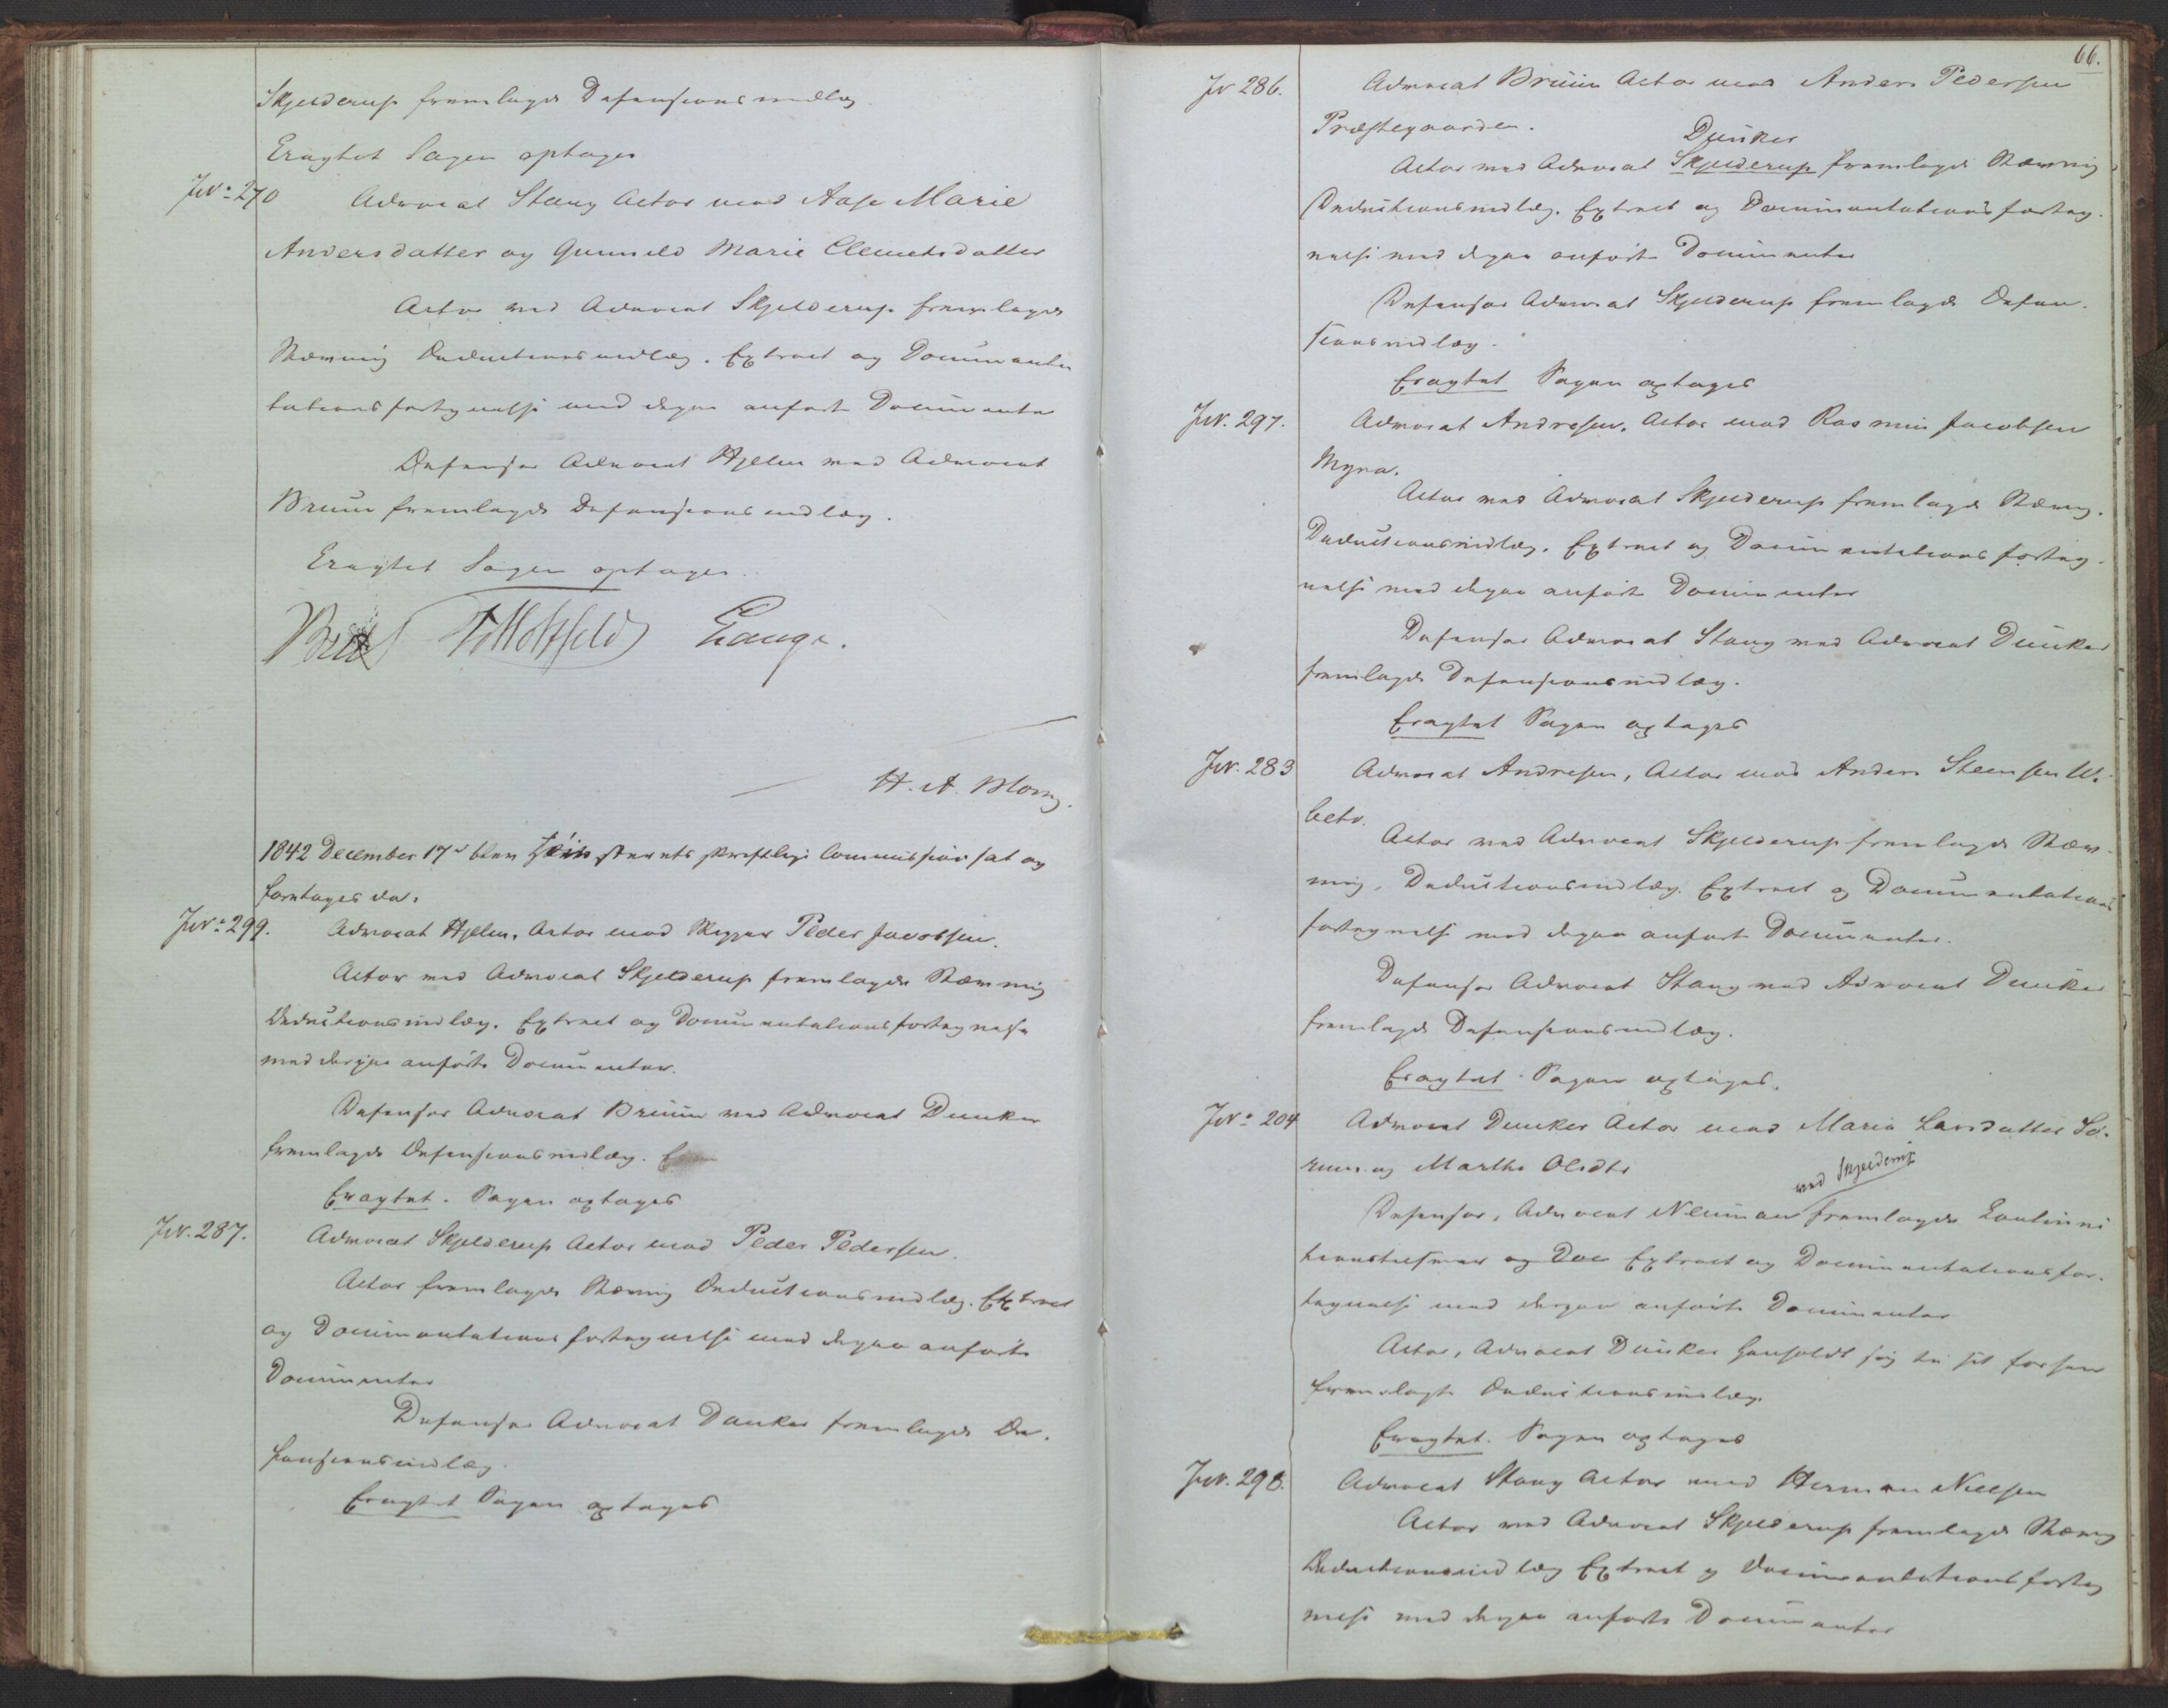 Skjelderup fremlagde Defensionsindlæg.
Eragtet Sagen optages
No: 270 Advocat Stang Actor mod Aase Marie
Andersdatter og Gunnild Marie Clemetsdatter
Actor ved Advocat Skjelderup fremlagde
Stævning Deductionsindlæg. Extract og Documenten
tationsfortegnelse med derpaa anførte Documenter
Defensor Advocat Hjelm ved Advocat
Bruun fremlagde Defensionsindlæg.
Eragtet Sagen optages.
Lange.
1842 December 17de blev skriftlige Commission sat og
foretages da:
No: 299. Advocat Hjelm, Actor mod Peder Jacobsen.
Actor ved Advocat Skjelderup fremlagde Stævning
Deductionsindlæg. Extract og Documentationsfortegnelse
med derpaa anførte Documenter.
Defensor Advocat Bruun ved Advocat Dunker
fremlagde Defensionsindlæg.
Eragtet. Sagen optages
No. 287. Advocat Skjelderup Actor mod Peder Pedersen.
Actor fremlagde Stævning Deductionsindlæg. Extract
og Documentationsfortegnelse med derpaa anførte
Documenter
Defensor Advocat Dunker fremlagde De-
fensionsindlæg.
Eragtet Sagen optages
66.
No 286. Advocat Bruun Actor mod Anders Pedersen
Præstegaarden.
Dunker
Actor ved Advocat Skjelderup fremlagde Stævning
Deductionsindlæg. Extract og Documentationsforteg-
nelse med derpaa anførte Documenter
Defensor Advocat Skjelderup fremlagde Defen-
sionsindlæg.
Eragtet Sagen optages
No. 297. Advocat Andresen, Actor mod Rasmus Jacobsen
Myra.
Actor ved Advocat Skjelderup fremlagde Stævng.
Deductionsindlæg. Extract og Documentationsforteg-
nelse med derpaa anførte Documenter
Defensor Advocat Stang ved Advocat Dunker
fremlagde Defensionsindlæg.
Eragtet Sagen optages
No. 283 Advocat Andresen, Actor mod Anders Steensen
Actor ved Advocat Skjelderup fremlagde Stæv-
ning, Deductionsindlæg. Extract og Documentations
fortegnelse med derpaa anførte Documenter.
Defensor Advocat Stang ved Advocat Dunker
fremlagde Defensionsindlæg.
Eragtet. Sagen optages.
No: 204 Advocat Dunker Actor mod Maria Larsdatter So-
rum og Marthe Olsdtr
ved Skjelderup
Defensor, Advocat Neuman fremlagde Continua
tionsstævning og Doc Extract og Documentationsfor-
tegnelse med derpaa anførte Documenter
Actor, Advocat Dunker henholdt sig til sit forhen
fremlagte Deductionsindlæg.
Eragtet. Sagen optages
No. 298. Advocat Stang Actor mod Herman Nielsen
Actor ved Advocat Skjelderup fremlagde Stævng
Deductionsindlæg Extract og Documentationsforteg
nelse med derpaa anførte Documenter